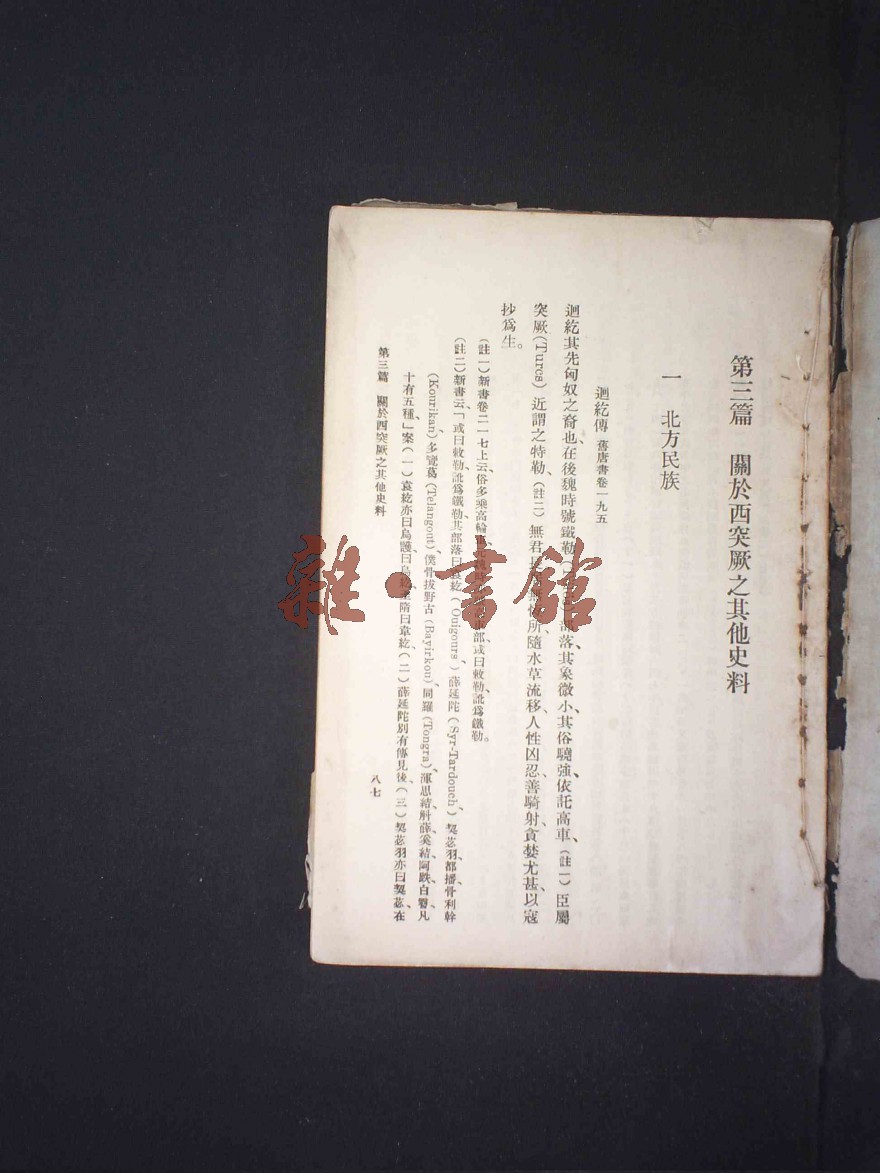 第三篇　關於西突厥之其他史料
一　北方民族
迴紇傳　舊唐書卷一九五
迴紇其先匈奴之裔也、在後魏時號鐵勒部落、其衆微小、其俗驍強、依託高車、(註一)臣屬
突厥(Turcs)近謂之特勒、(註二)無君長、居無恆所、隨水草流移、人性凶忍、善騎射、貪婪尤甚、以寇
抄爲生。
(註一)新書卷二一七上云、俗多乘高輪車、元魏時亦號高車部、或曰敕勒、訛爲鐵勒。
(註二)新書云、「或曰敕勒、訛爲鐵勒、其部落曰袁紇(Ouigours)薛延陀(Syr-Tardouch)契苾羽、都播、骨利幹
(Kourikan)多覽葛(Telangout)僕骨、拔野古(Bayirkou)同羅(Tongra)渾、思結、斛薛、奚結、阿跌、白霫、凡
十有五種、」案(一)袁紇亦曰烏護、曰烏紇、至隋曰韋紇、(二)薛延陀別有傳見後、(三)契苾羽亦曰契苾、在
第三篇　關於西突厥之其他史料
八七
雜·書館